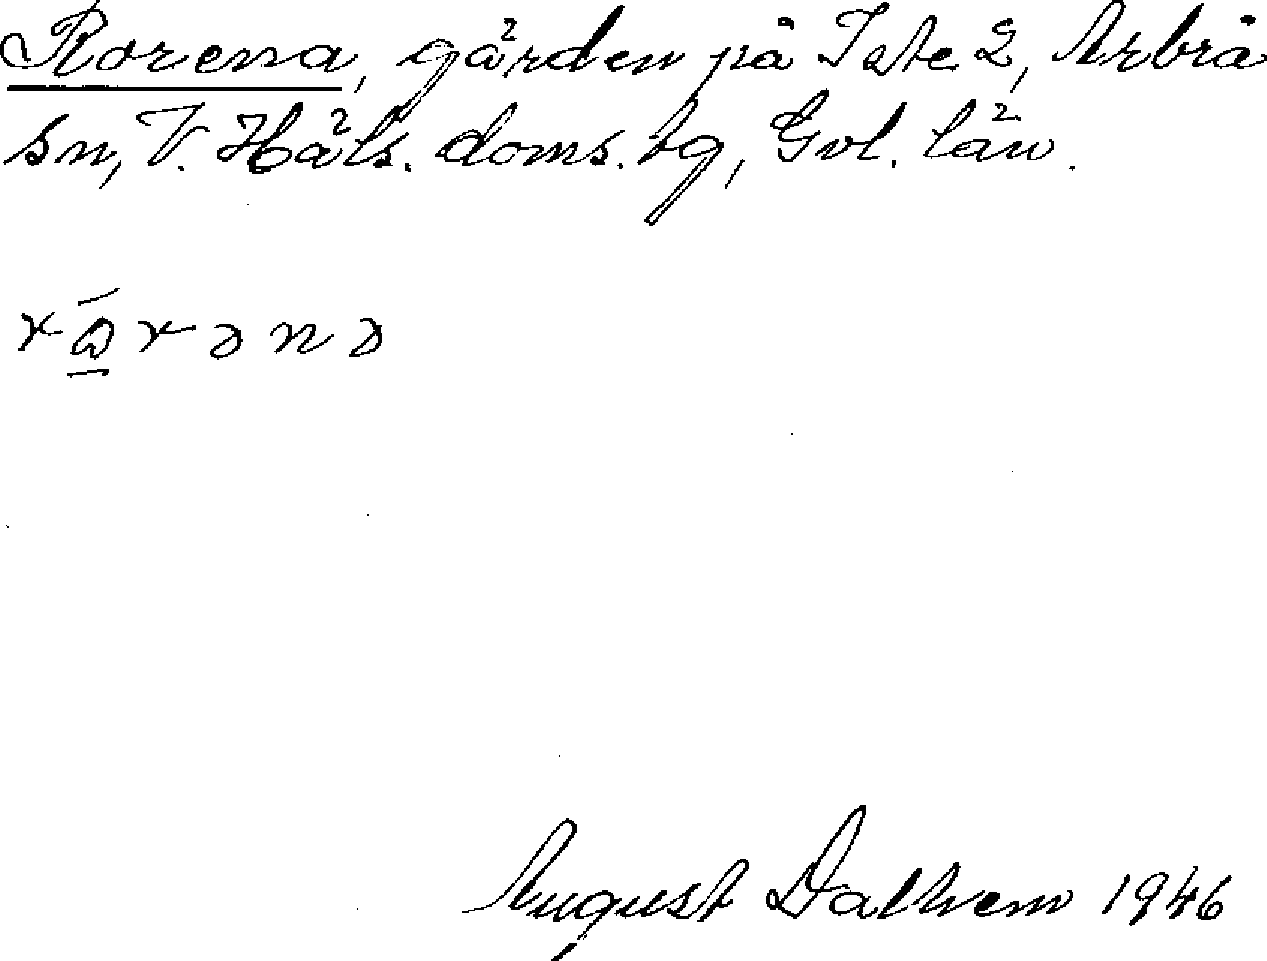 Rorena, gården på Iste 2, Arbrå
sn, V. Häls. doms. tg, Gvl. län.
rɷ̄rənə
August Dalhem 1946